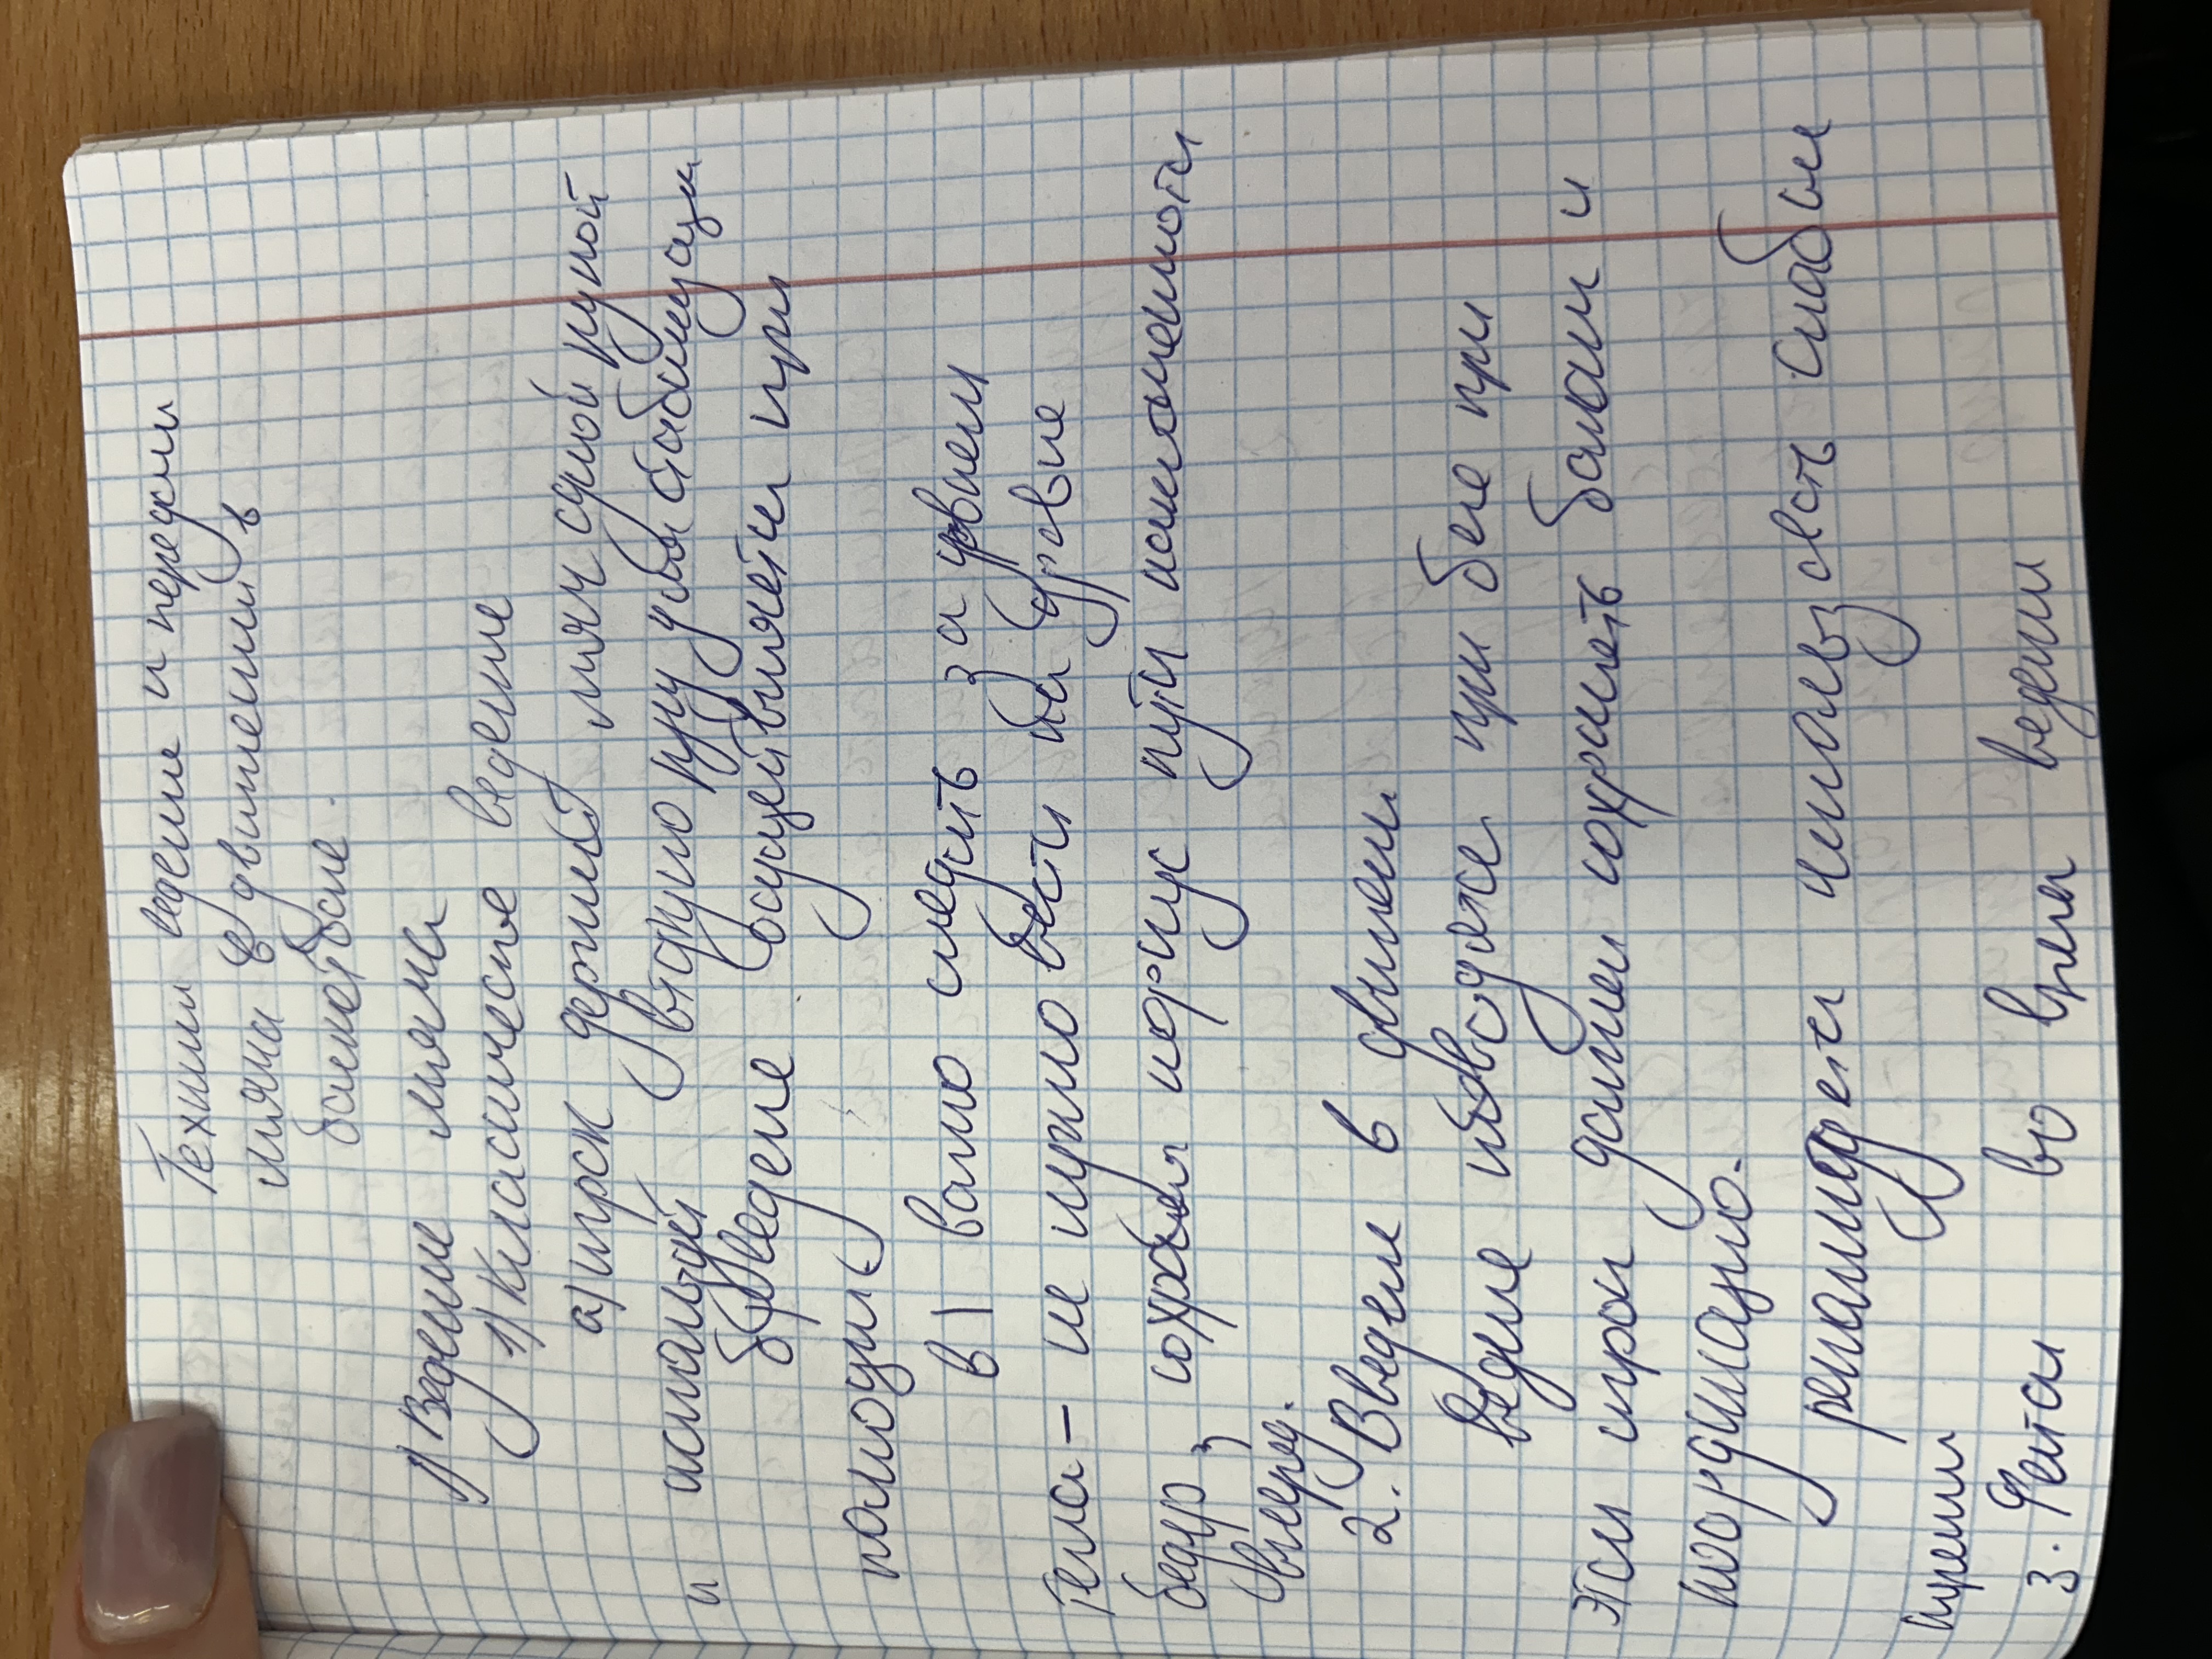 Техники ведение и передачи
мяча в движении в
баскетболе.
1) Ведение мяча
1) Класическое ведение
а) игрок держит мяч одной рукой
и использует вторую руку для стабилизаци
б) ведение осуществляется при
помощи
в) важно следить за уровнем
тела - не нужно вести на уровне
бедер, сохраняя корпус наклоненом
вперед.
2. Введени в движени
ведние при беге при
этом игрок должен сохранять баланс и
координацию.
рекомендуется использовать слаб
3. Финтам во врем ведени